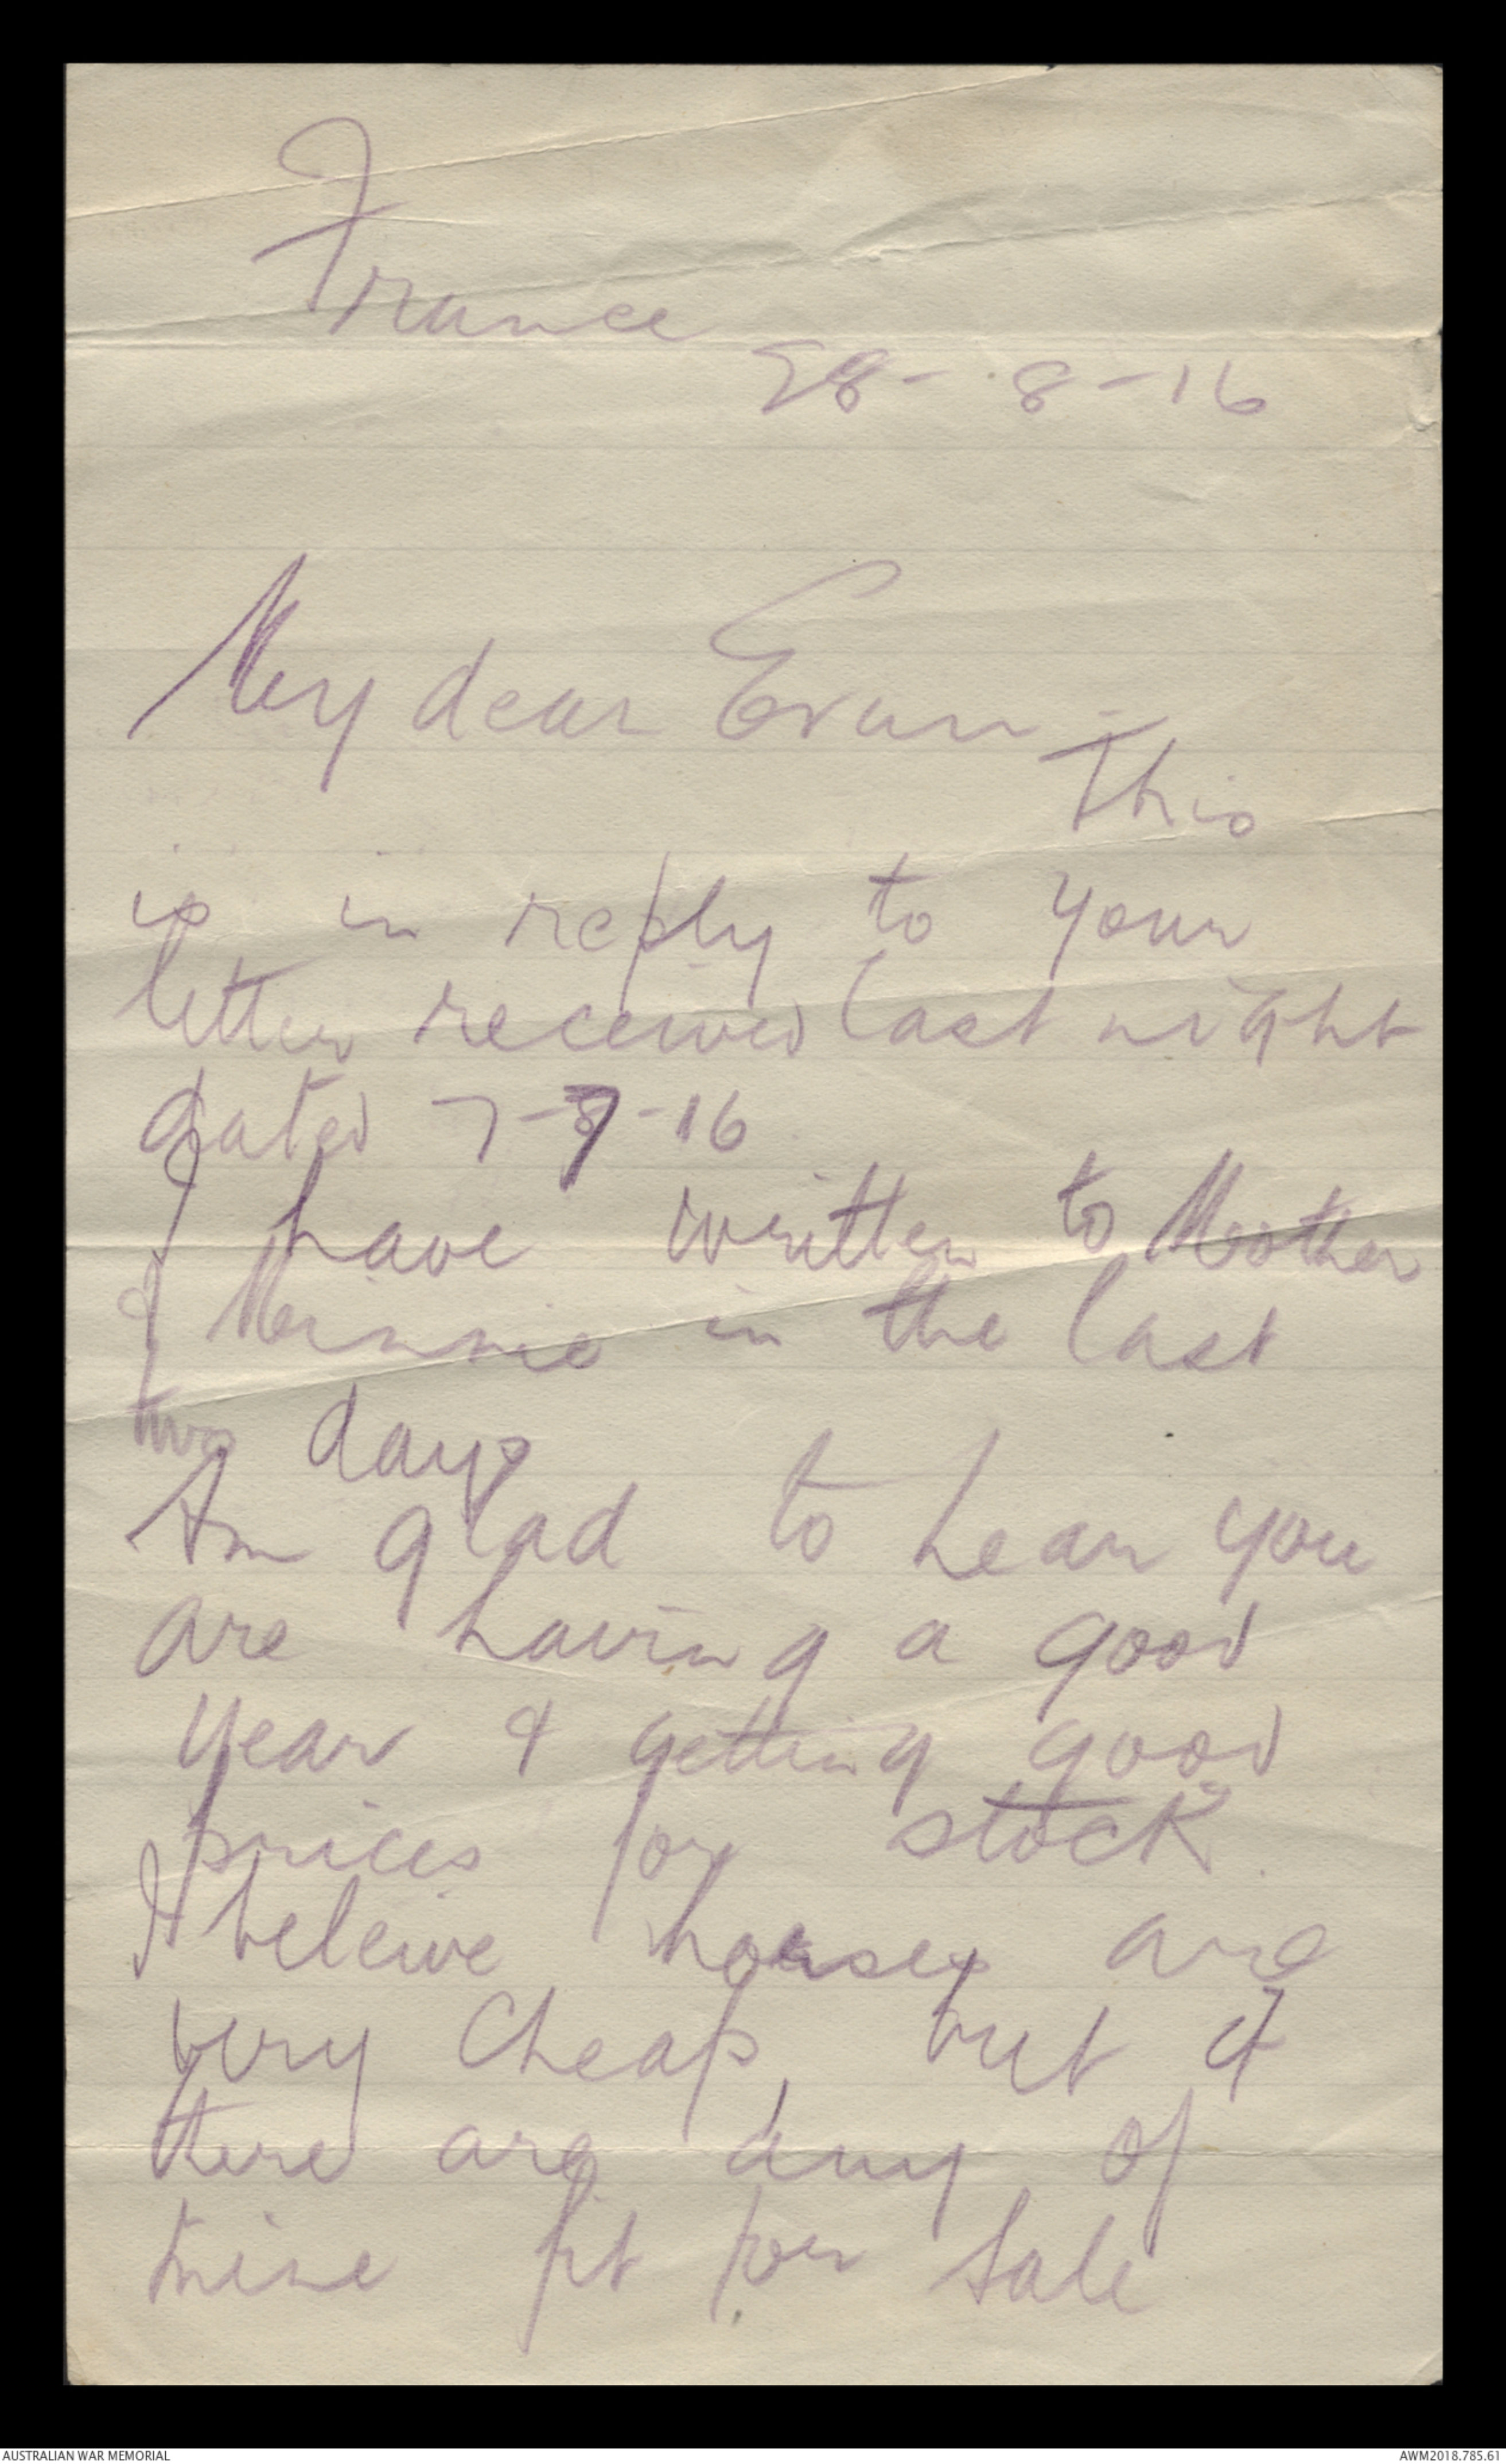 France
28-8-16
My dear Evan -
This
is in reply to your
letter received last night
dated 7-7-16
I have written to Mother
& Minnie in the last
two days
Am glad to hear you
are having a good
year & getting good
prices for stock.
I beleive horses are
very cheap, but if
there are any of
mine fit for sale
AUSTRALIAN WAR MEMORIAL
AWM2018.785.61